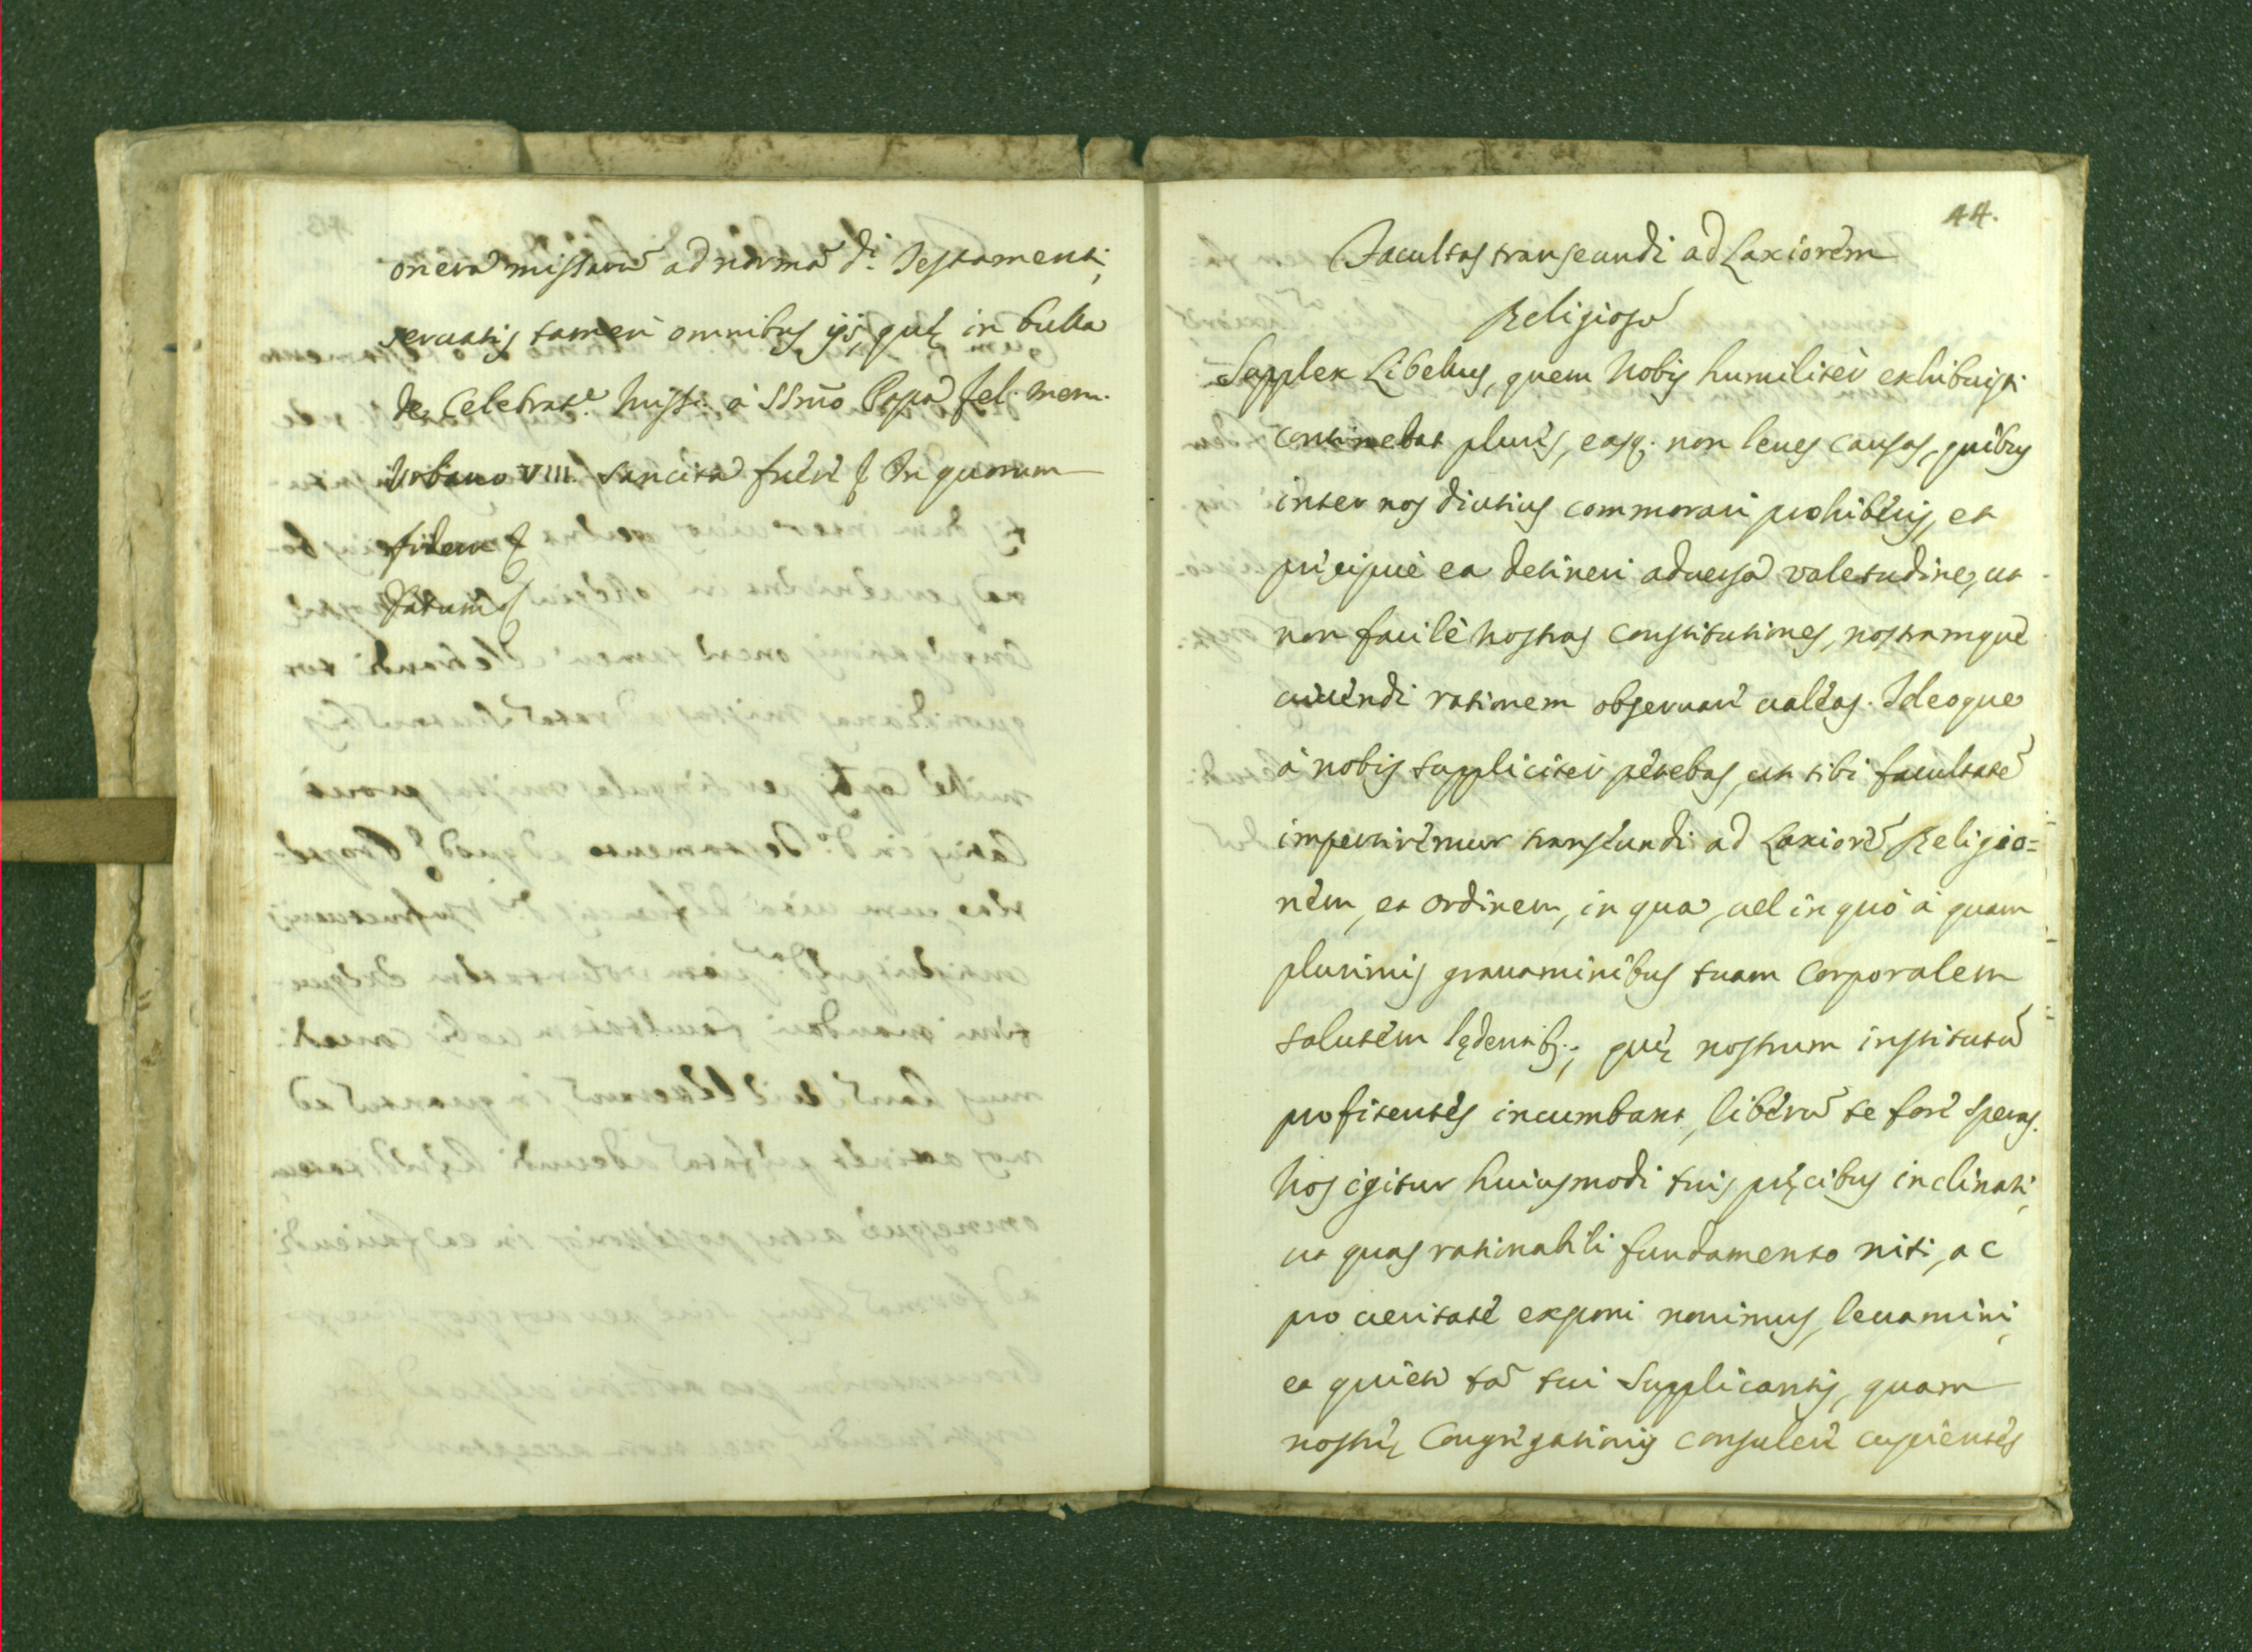 onera missarũ ad normã d.i Testamenti,
seruatis tamen omnibus ijs, quę in bulla
de Celebrat.e Miss: à SSm̃o Papa fel. mem.
Urbano VIII. sancita fuêre &c In quorum
fidem &c
Datum &c
44.
Facultas transeundi ad Laxiorem
Religionẽ
Supplex Libellus, quem Nobis humiliter exhibuisti
continebat plures, easq. non leues causas, quibus
inter nos diutius commorari prohiberis, et
pręcipuè ea detineri aduersa valetudine, ut
non facilè nostras Constitutiones, nostramque
uiuendi rationem obseruare ualeas. Ideoque
à nobis suppliciter petebas, ut tibi facultatẽ
impertiremur transeundi ad Laxiorẽ Religio=
nem, et ordinem, in qua, uel in quo à quam
plurimis grauaminibus tuam Corporalem
salutem lędentib:, quę nostrum institutũ
profitentes incumbant, liberũ te fore speras.
Nos igitur huiusmodi tuis pręcibus inclinati,
ut quas rationabili fundamento niti, ac
pro ueritate exponi nouimus, leuamini,
et quieti tã tui Supplicantis, quam
nostrę Congregationis consulere cupientes